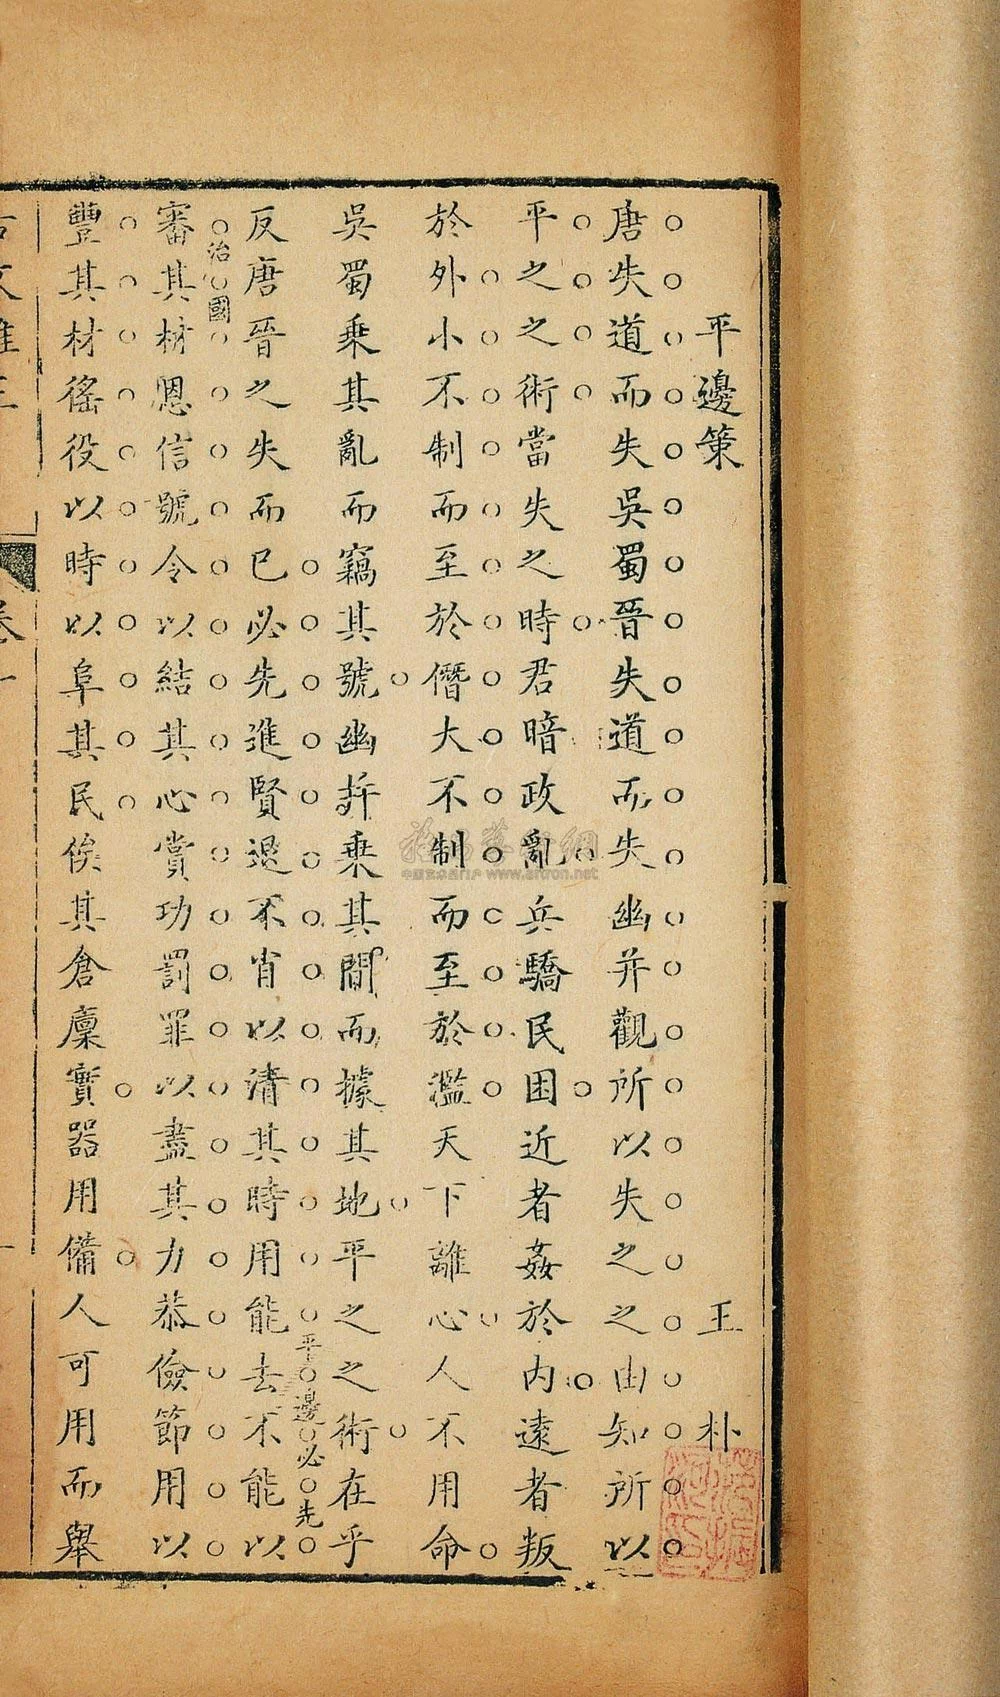 平邊策 王朴
唐失道而失吳蜀晉失道而失幽并觀所以失之之由知所以
平之之術當失之時君暗政亂兵驕民困近者姦於內遠者叛
於外小不制而至於僭大不制而至於濫天下離心人不用命
吳蜀乘其亂而竊其號幽并乘其間而據其地平之之術在乎
反唐晉之失而已必先進賢退不肖以清其時用能去不能以
平邊必先
治國
審其材恩信號令以結其心賞功罰罪以盡其力恭儉節用以
豐其材徭役以時以阜其民俟其倉廩實器用備人可用而舉
卷一
www.artron.net